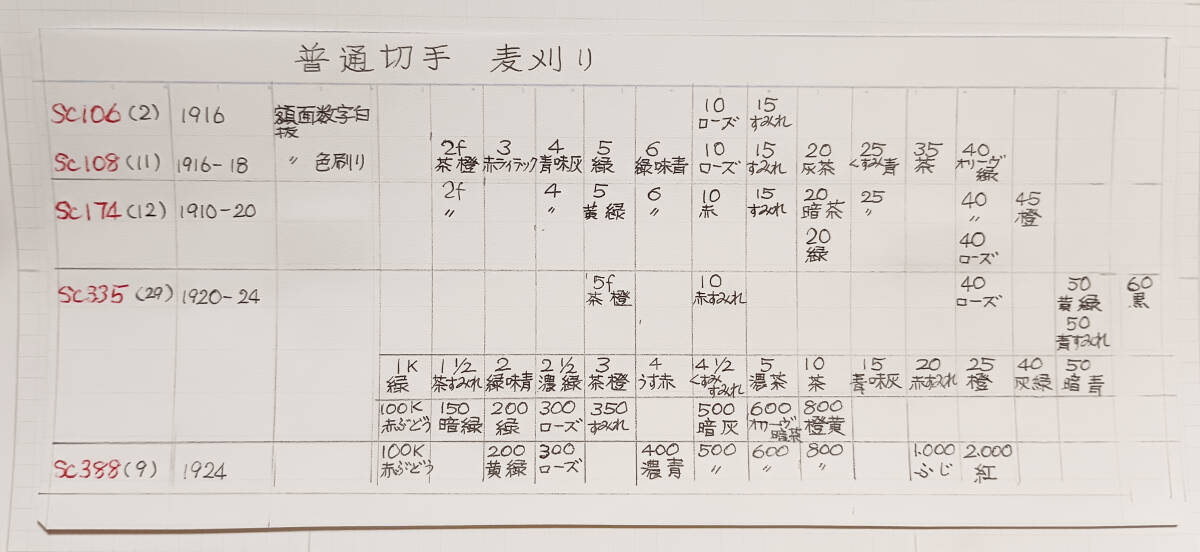 普通切手 麦刈り
Sc106(2) 1916 額面数字白抜 10 ローズ 15 すみれ
Sc108(11) 1916-18 〃 色刷り 2f 茶橙 3 赤ライラック 4 青味灰 5 緑 6 緑味青 10 ローズ 15 すみれ 20 灰茶 25 くすみ青 35 茶 40 オリーヴ緑
Sc174(12) 1910-20 2f 〃 4 〃 5 黄緑 6 〃 10 赤 15 すみれ 20 暗茶 25 〃 40 〃 45 橙
20 緑 40 ローズ
Sc335(29) 1920-24 5f 茶橙 10 赤すみれ 40 ローズ 50 黄緑 60 黒
50 青すみれ
1K 緑 1½ 茶すみれ 2 緑味青 2½ 濃緑 3 茶橙 4 うす赤 4½ くすみすみれ 5 濃茶 10 茶 15 青味灰 20 赤すみれ 25 橙 40 灰緑 50 暗青
100K 赤ぶどう 150 暗緑 200 緑 300 ローズ 350 すみれ 500 暗灰 600 オリーヴ暗茶 800 橙黄
Sc388(9) 1924 100K 赤ぶどう 200 黄緑 300 ローズ 400 濃青 500 〃 600 〃 800 〃 1.000 ふじ 2.000 紅